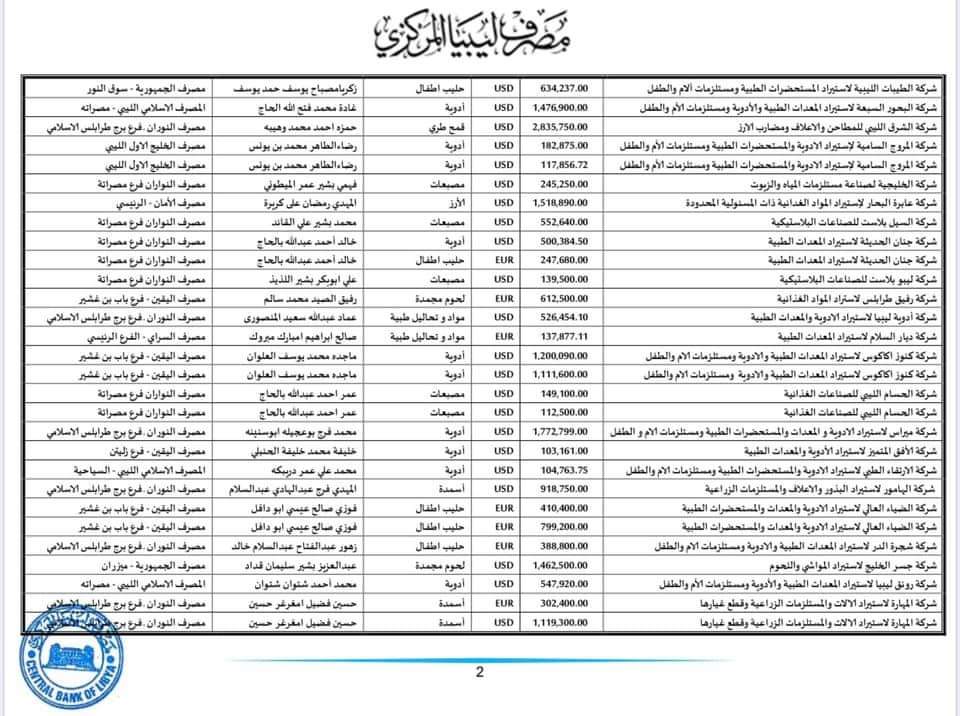 مصرف ليبيا المركزي
شركة الطيبات الليبية لاستيراد المستحضرات الطبية ومستلزمات الام والطفل 634,237.00 USD حليب اطفال زكريا مصباح يوسف حمد يوسف مصرف الجمهورية - سوق النور
شركة البحور السبعة لاستيراد المعدات الطبية والأدوية ومستلزمات الأم والطفل 1,476,900.00 USD أدوية غادة محمد فتح الله الحاج المصرف الاسلامي الليبي - مصراته
شركة الشرق الليبي للمطاحن والاعلاف ومضارب الارز 2,835,750.00 USD قمح طري حمزه احمد محمد وهيبه مصرف النوران .فرع برج طرابلس الاسلامي
شركة المروج السامية لإستيراد الادوية والمستحضرات الطبية ومستلزمات الأم والطفل 182,875.00 USD أدوية رضاءالطاهر محمد بن يونس مصرف الخليج الاول الليبي
شركة المروج السامية لإستيراد الادوية والمستحضرات الطبية ومستلزمات الأم والطفل 117,856.72 USD أدوية رضاءالطاهر محمد بن يونس مصرف الخليج الاول الليبي
شركة الخليجية لصناعة مستلزمات المياه والزيوت 245,250.00 USD مصبعات فهمي بشير عمر الميطوني مصرف النواران فرع مصراتة
شركة عابرة البحار لإستيراد المواد الغدائية ذات المسئولية المحدودة 1,518,890.00 USD الأرز المهدي رمضان على كريرة مصرف الأمان - الرئيسي
شركة السيل بلاست للصناعات البلاستيكية 552,640.00 USD مصبعات محمد بشير علي القائد مصرف النواران فرع مصراتة
شركة جنان الحديثة لاستيراد المعدات الطبية 500,384.50 USD أدوية خالد أحمد عبدالله بالحاج مصرف النواران فرع مصراتة
شركة جنان الحديثة لاستيراد المعدات الطبية 247,680.00 EUR حليب اطفال خالد أحمد عبدالله بالحاج مصرف النواران فرع مصراتة
شركة ليبو بلاست للصناعات البلاستيكية 139,500.00 USD مصبعات علي ابوبكر بشير اللذيذ مصرف النواران فرع مصراتة
شركة رفيق طرابلس لاستراد المواد الغذائية 612,500.00 EUR لحوم مجمدة رفيق الصيد محمد سالم مصرف اليقين - فرع باب بن غشير
شركة أدوية ليبيا لاستيراد الادوية والمعدات الطبية 526,454.10 USD مواد و تحاليل طبية عماد عبدالله سعيد المنصورى مصرف النوران .فرع برج طرابلس الاسلامي
شركة ديار السلام لاستيراد المعدات الطبية 137,877.11 EUR مواد و تحاليل طبية صالح ابراهيم امبارك مبروك مصرف السراي - الفرع الرئيسي
شركة كنوز اكاكوس لاستيراد المعدات الطبية والادوية ومستلزمات الام والطفل 1,200,090.00 USD أدوية ماجده محمد يوسف العلوان مصرف اليقين - فرع باب بن غشير
شركة كنوز اكاكوس لاستيراد المعدات الطبية والادوية ومستلزمات الام والطفل 1,111,600.00 USD أدوية ماجده محمد يوسف العلوان مصرف اليقين - فرع باب بن غشير
شركة الحسام الليبي للصناعات الغذائية 149,100.00 USD مصبعات عمر احمد عبدالله بالحاج مصرف النواران فرع مصراتة
شركة الحسام الليبي للصناعات الغذائية 112,500.00 USD مصبعات عمر احمد عبدالله بالحاج مصرف النواران فرع مصراتة
شركة ميراس لاستيراد الادوية و المعدات والمستحضرات الطبية ومستلزمات الام و الطفل 1,772,799.00 USD أدوية محمد فرج بوعجيله ابوسنينه مصرف النوران .فرع برج طرابلس الاسلامي
شركة الأفق المتميز لاستيراد الأدوية والمعدات الطبية 103,161.00 USD أدوية محمد خليفة محمد خليفة الحنبلي مصرف اليقين - فرع زليتن
شركة الارتقاء الطبي لاستيراد الادوية والمستحضرات الطبية ومستلزمات الام والطفل 104,763.75 USD أدوية محمد علي عمر دريبكه المصرف الاسلامي الليبي - السياحية
شركة الهامور لاستيراد البذور والاعلاف والمستلزمات الزراعية 918,750.00 USD أسمدة المهدي فرج عبدالهادي عبدالسلام مصرف النوران .فرع برج طرابلس الاسلامي
شركة الضياء العالي لاستيراد الادوية والمعدات والمستحضرات الطبية 410,400.00 EUR حليب اطفال فوزي صالح عيسي ابو دافل مصرف اليقين - فرع باب بن غشير
شركة الضياء العالي لاستيراد الادوية والمعدات والمستحضرات الطبية 799,200.00 EUR حليب اطفال فوزي صالح عيسي ابو دافل مصرف اليقين - فرع باب بن غشير
شركة شجرة الدر لاستيراد المعدات الطبية والادوية ومستلزمات الأم والطفل 388,800.00 EUR حليب اطفال زهور عبدالفتاح عبدالسلام خالد مصرف النوران .فرع برج طرابلس الاسلامي
شركة جسر الخليج لاستيراد المواشي والنحوم 1,462,500.00 USD لحوم مجمدة عبدالعزيز بشير سليمان قداد مصرف الجمهورية - ميزران
شركة رونق ليبيا لاستيراد المعدات الطبية والأدوية ومستلزمات الأم والطفل 547,920.00 USD أدوية محمد أحمد شتوان شتوان المصرف الاسلامي الليبي - مصراته
شركة المهارة لاستيراد الالات والمستلزمات الزراعية وقطع غيارها 302,400.00 EUR أسمدة حسين فضيل امغرغر حسين مصرف النوران .فرع برج طرابلس الاسلامي
شركة المهارة لاستيراد الالات والمستلزمات الزراعية وقطع غيارها 1,119,300.00 USD أسمدة حسين فضيل امغرغر حسين مصرف النوران .فرع برج
CENTRAL BANK OF LIBYA
2